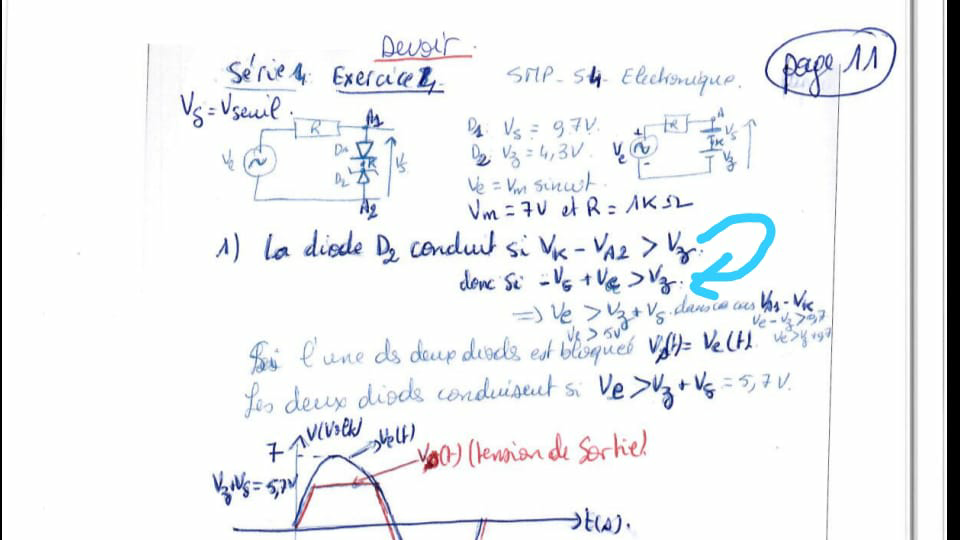 Devoir.
page 11
Série 1. Exercice 2. SMP - S4 Electronique.
Vs = Vseuil.
R
A1
Ve
D1
K
D2
Vs
A2
D1: Vs = 0,7V.
D2: Vz = 4,3V.
Ve = Vm sinωt.
Vm = 7V et R = 1KΩ
Ve
R
A
Vs
K
Vz
Vs
1) La diode D2 conduit si VK - VA2 > Vz.
donc si -Vs + Ve > Vz.
=> Ve > Vz + Vs. dans ce cas VA1 - VK
Ve > 5V
Ve - Vz > 0,7
Si l'une ds deux diods est bloqueé Vs(t) = Ve(t).
Les deux diods conduisent si Ve > Vz + Vs = 5,7V.
7
Ve(t)
Vs(t) (tension de Sortie)
Vz+Vs = 5,7V
t(s).